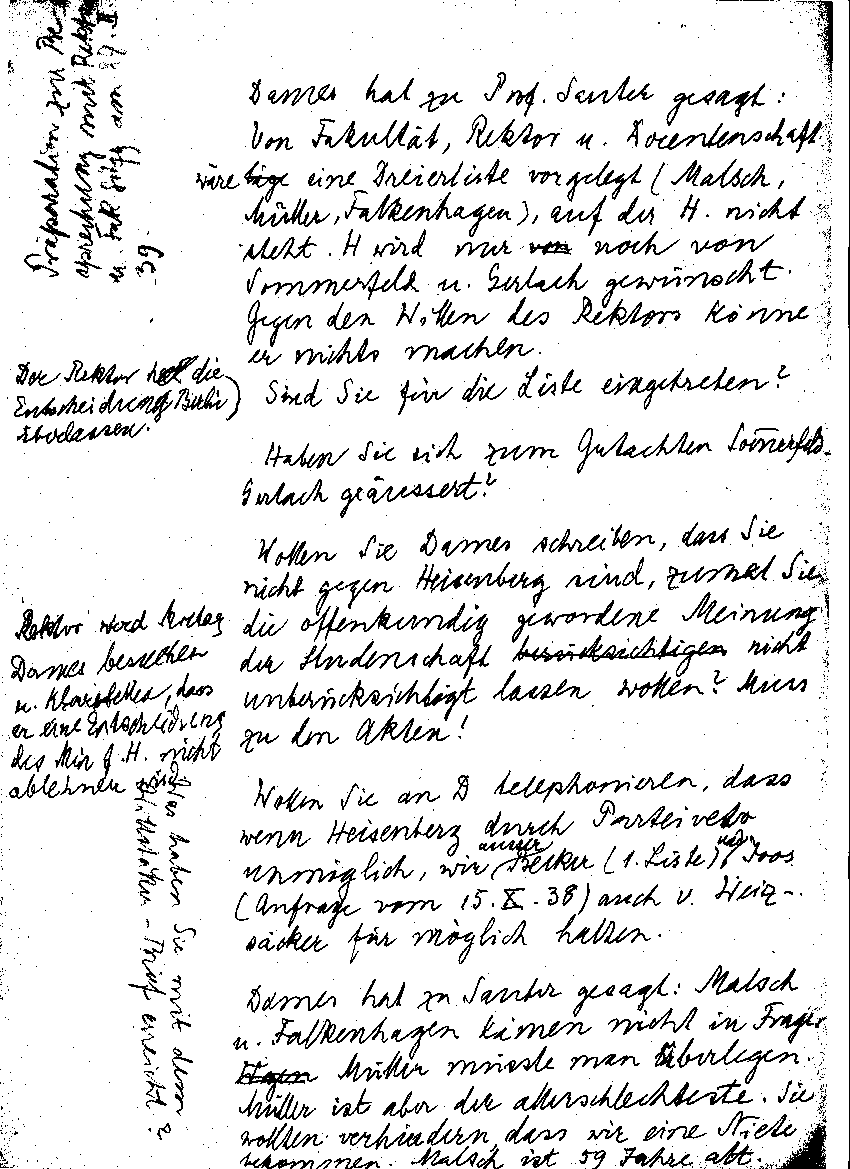 Präparation zur Be-
sprechung mit Rektor
u. Fak am 29. II
39.
Dames hat zu Prof. Sauter gesagt:
Von Fakultät, Rektor u. Docentenschaft
wäre läge eine Dreierliste vorgelegt (Malsch,
Müller, Falkenhagen), auf der H. nicht
steht. H wird nur von noch von
Sommerfeld u. Gerlach gewünscht.
Gegen den Willen des Rektors könne
er nichts machen.
Der Rektor hat die
Entscheidung Berlin)
überlassen.
Sind Sie für die Liste eingetreten?
Haben Sie sich zum Gutachten Som̄erfeld-
Gerlach geäussert?
Wollen Sie Dames schreiben, dass Sie
nicht gegen Heisenberg sind, zumal Sie
die offenkundig gewordene Meinung
der Studenschaft berücksichtigen nicht
unberücksichtigt lassen wollen? Muss
zu den Akten!
Rektor wird Freitag
Dames besuchen
u. klarstellen, dass
er eine Entscheidung
des Min f. H. nicht
ablehnen wird
Was haben Sie mit dem
Brief erreicht?
Wollen Sie an D telephonieren, dass
wenn Heisenberg durch Parteiveto
unmöglich, wir ausser Becker (1. Liste) und Joos
(Anfrage vom 15. X. 38) auch v. Weiz-
säcker für möglich halten.
Dames hat zu Sauter gesagt: Malsch
u. Falkenhagen kämen nicht in Frage,
Müller müsste man überlegen.
Müller ist aber der allerschlechteste. Sie
wollten verhindern, dass wir eine Niete
bekommen. Malsch ist 59 Jahre alt.